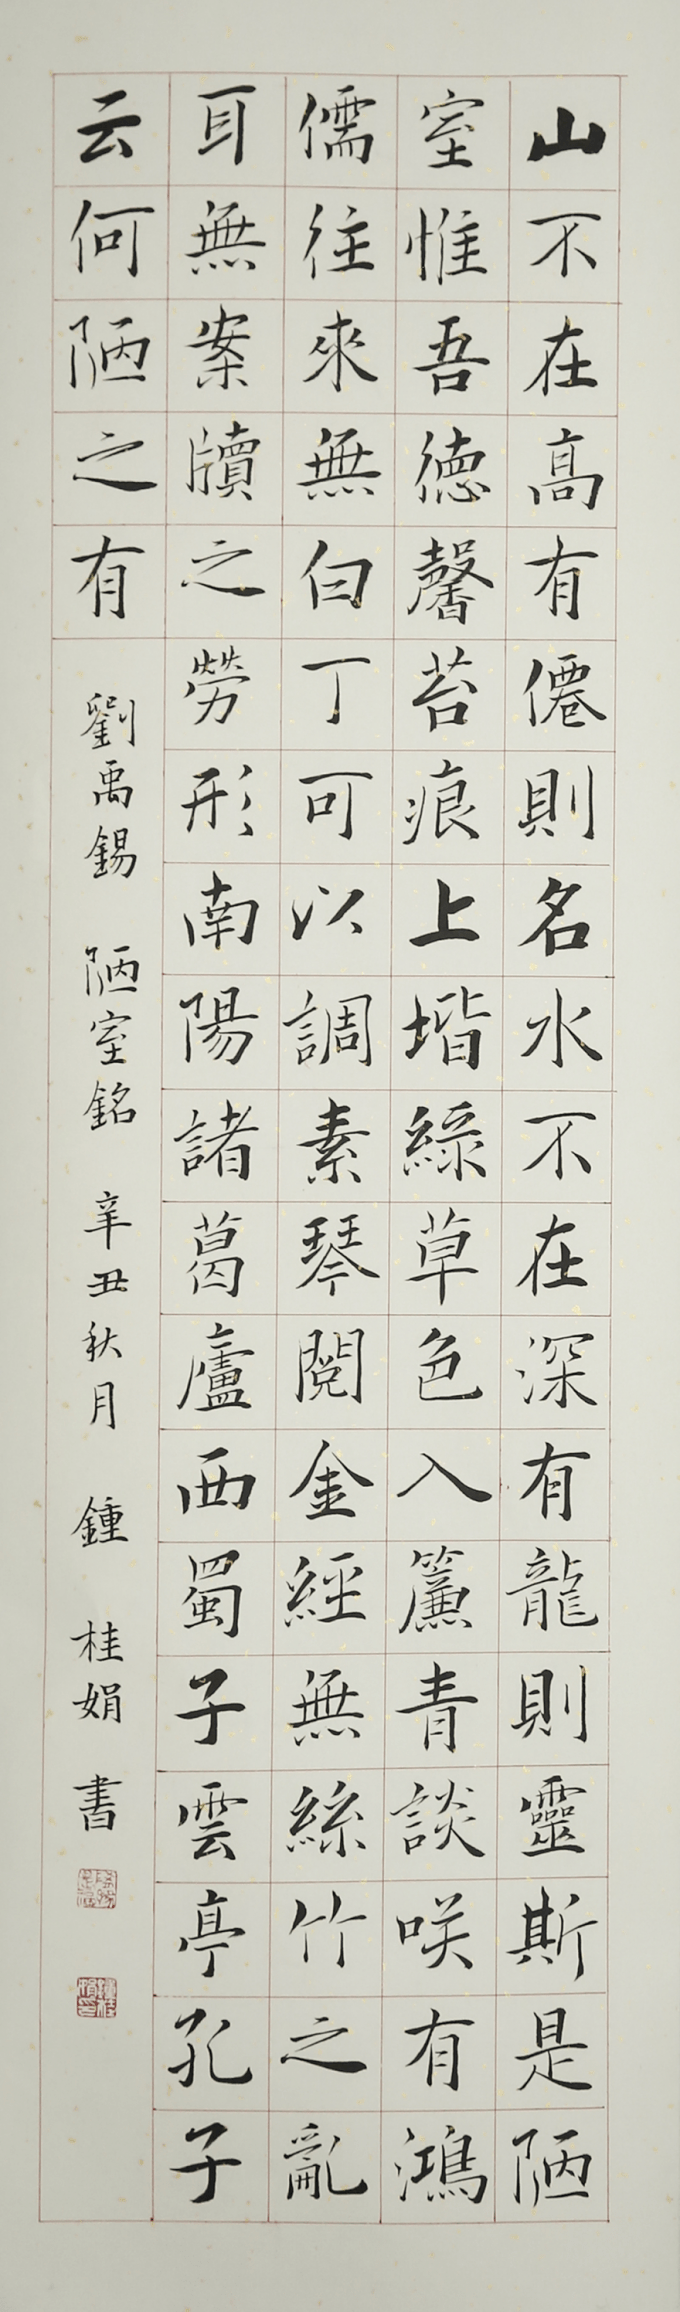 山不在高有僊則名水不在深有龍則靈斯是陋
室惟吾徳馨苔痕上堦綠草色入簾青談咲有鴻
儒往來無白丁可以調素琴閱金經無絲竹之亂
耳無案牘之勞形南陽諸葛廬西蜀子雲亭孔子
云何陋之有 劉禹錫 陋室銘 辛丑秋月 鍾 桂娟 書